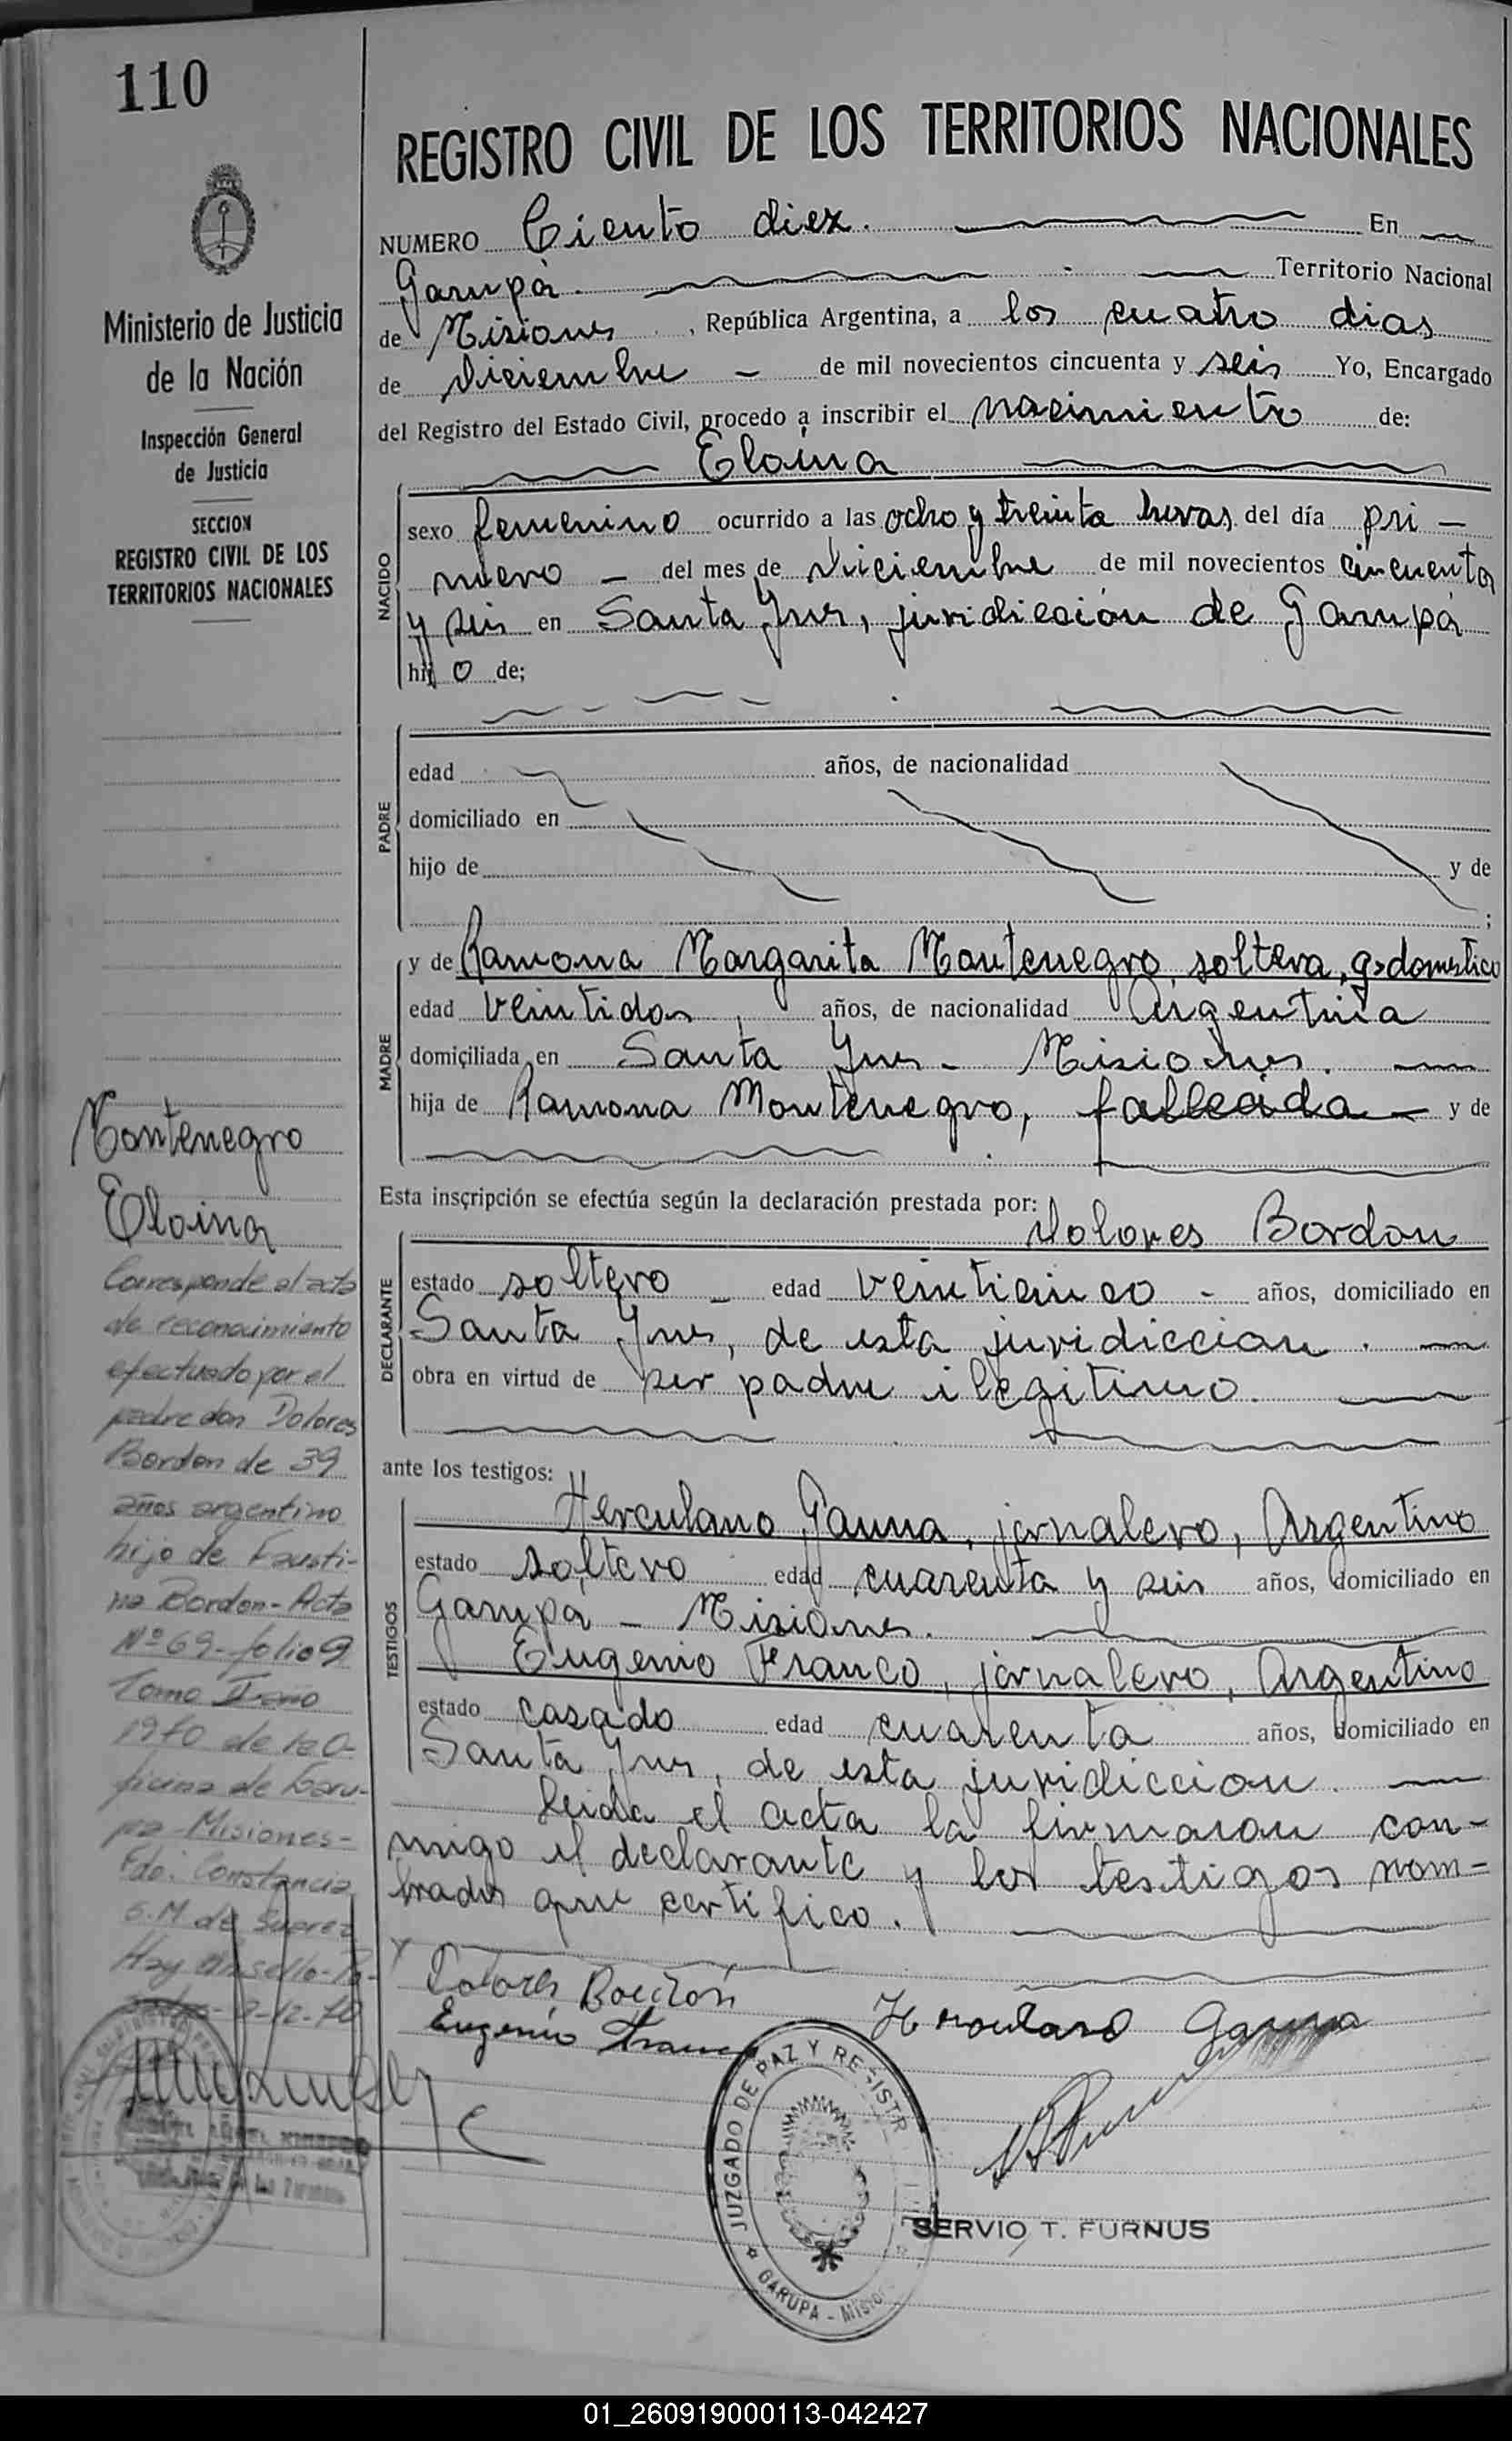 110
REGISTRO CIVIL DE LOS TERRITORIOS NACIONALES
NUMERO Ciento diez. En
Garupá. Territorio Nacional
de Misiones, República Argentina, a los cuatro dias
de Diciembre - de mil novecientos cincuenta y seis Yo, Encargado
del Registro del Estado Civil, procedo a inscribir el nacimiento de:
Eloina
NACIDO
sexo femenino ocurrido a las ocho y treinta horas del día pri-
mero - del mes de Diciembre de mil novecientos cincuenta
y seis en Santa Ines, juridicción de Garupá
hijo de;
PADRE
edad años, de nacionalidad
domiciliado en
hijo de y de
;
MADRE
y de Ramona Margarita Montenegro, soltera, q> domestico
edad veintidos, años, de nacionalidad Argentina
domiciliada en Santa Ines - Misiones.
hija de Ramona Montenegro, fallecida - y de
Esta inscripción se efectúa según la declaración prestada por:
Dolores Bordon
DECLARANTE
estado soltero - edad veinticinco - años, domiciliado en
Santa Ines, de esta juridiccion.
obra en virtud de ser padre ilegitimo.
ante los testigos:
TESTIGOS
Herculano Gauna, jornalero, Argentino
estado soltero edad cuarenta y seis años, domiciliado en
Garupá - Misiones.
Eugenio Franco, jornalero, Argentino
estado casado edad cuarenta años, domiciliado en
Santa Ines, de esta juridiccion.
Leida el acta la firmaron con-
migo el declarante y los testigos nom-
brados que certifico.
Dolores Bordón
Eugenio Franco
Herculano Gauna
JUZGADO DE PAZ Y REGISTR
GARUPA - Misio
SERVIO T. FURNUS
Ministerio de Justicia
de la Nación
Inspección General
de Justicia
SECCION
REGISTRO CIVIL DE LOS
TERRITORIOS NACIONALES
Montenegro
Eloina
Corresponde al acta
de reconocimiento
efectuado por el
padre don Dolores
Bordon de 39
años argentino
hijo de Fausti-
na Bordon - Acta
Nº 69 - folio 9
Tomo I año
1970 de la O-
ficina de Garu-
pa - Misiones -
Fdo: Constancia
G. M de Suarez
Hay un sello - Po-
9-12-70
01_260919000113-042427